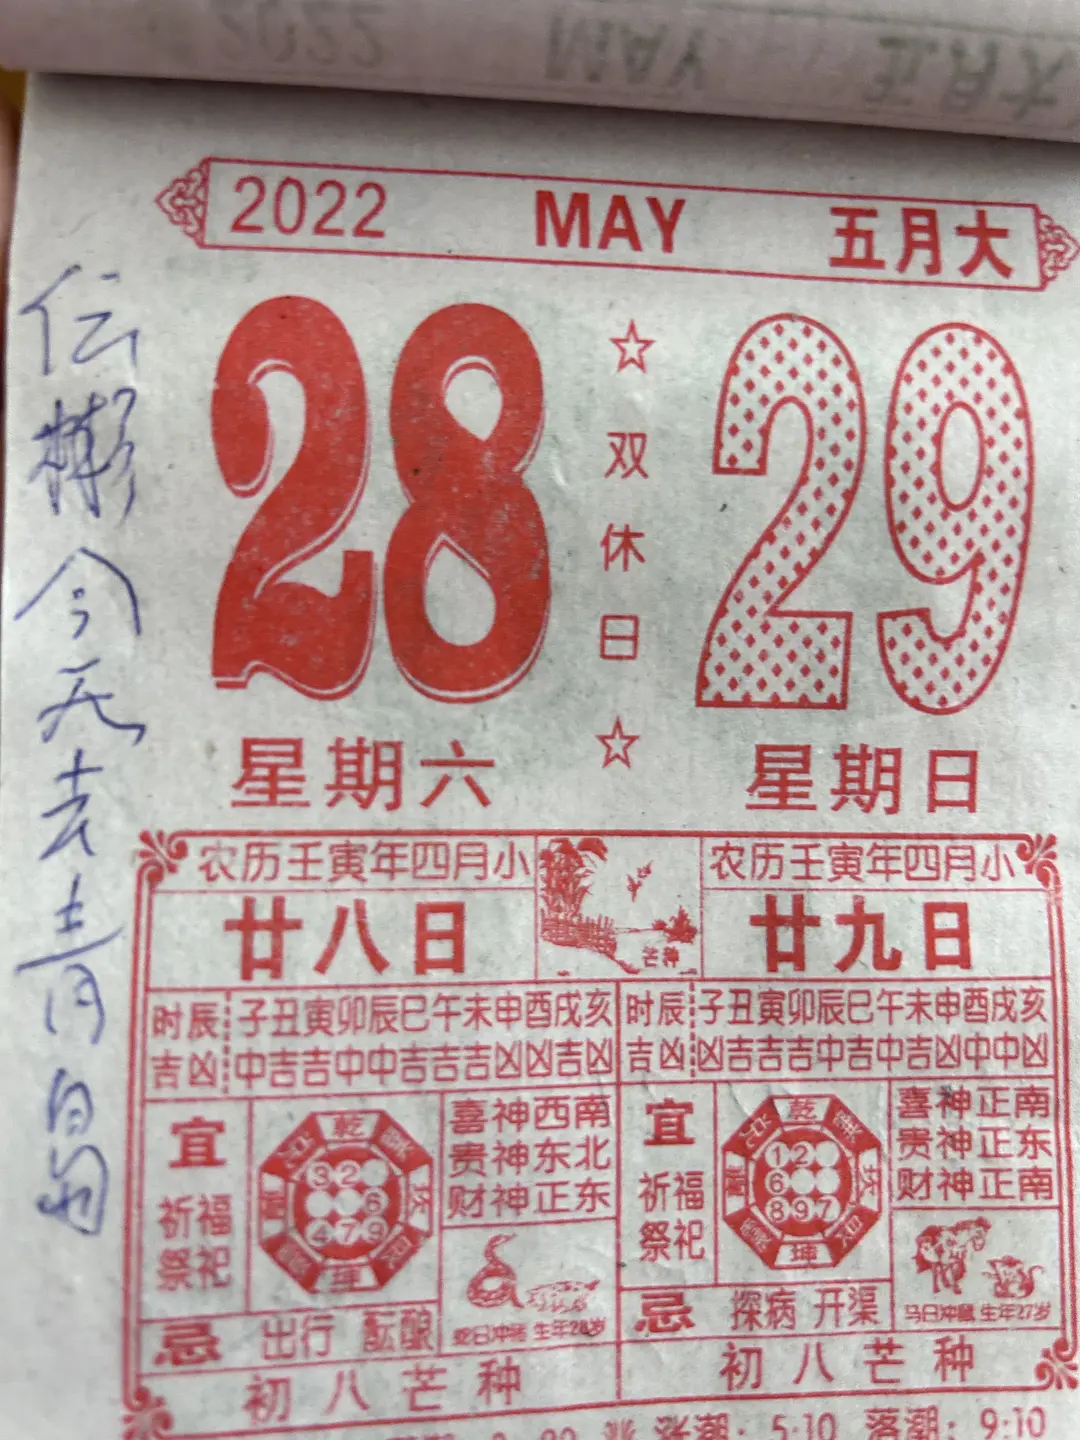 2022 MAY 五月大
28 29
☆双休日☆
星期六 星期日
伝彬今天去青岛
农历壬寅年四月小 农历壬寅年四月小
廿八日 芒种 廿九日
时辰 子丑寅卯辰巳午未申酉戌亥
吉凶 中吉吉中中吉吉吉凶凶吉凶
时辰 子丑寅卯辰巳午未申酉戌亥
吉凶 凶吉吉吉中吉中吉凶中中凶
宜
祈福
祭祀
乾
坎
坤
32
6
479
喜神西南
贵神东北
财神正东
蛇日冲猪 生年28岁
忌 出行 酝酿
初八芒种
宜
祈福
祭祀
乾
坎
坤
12
6
897
喜神正南
贵神正东
财神正南
马日冲鼠 生年27岁
忌 探病 开渠
初八芒种
涨潮：5:10 落潮：9:10